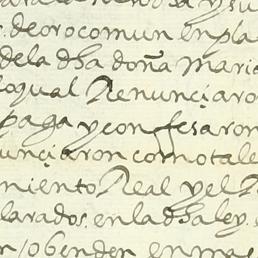 de oro comun en pla
de la dha doña Maria
loqual Renunçiaro
paga y confesaron
unçiaron como tale
miento Real y el
larados. en la dha ley.
obender en mas